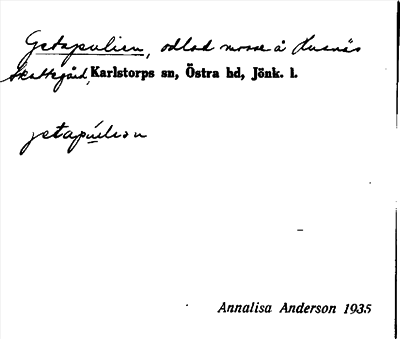 Getapulien, odlad mosse å Kusnäs
Skattegård, Karlstorps sn, Östra hd, Jönk. l.
jetapúlion
Annalisa Anderson 1935